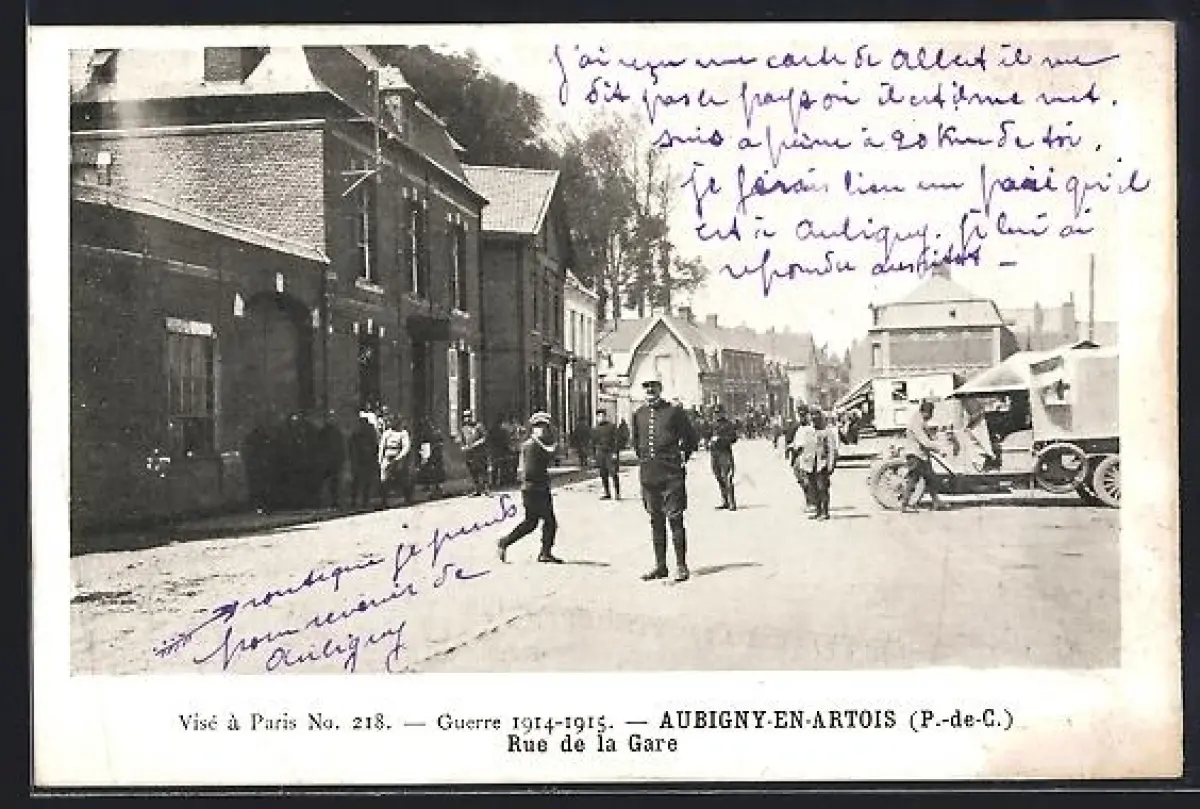 j'ai reçu une carte de Albert il me
dit pas le pays où il est il me met.
suis a peine à 20 Km de toi.
je ferais bien un pari qu'il
est à Aubigny. je lui ai
repondu aussitot —
route que je prends
pour revenir de
Aubigny
Visé à Paris No. 218. — Guerre 1914-1915. — AUBIGNY-EN-ARTOIS (P.-de-C.)
Rue de la Gare